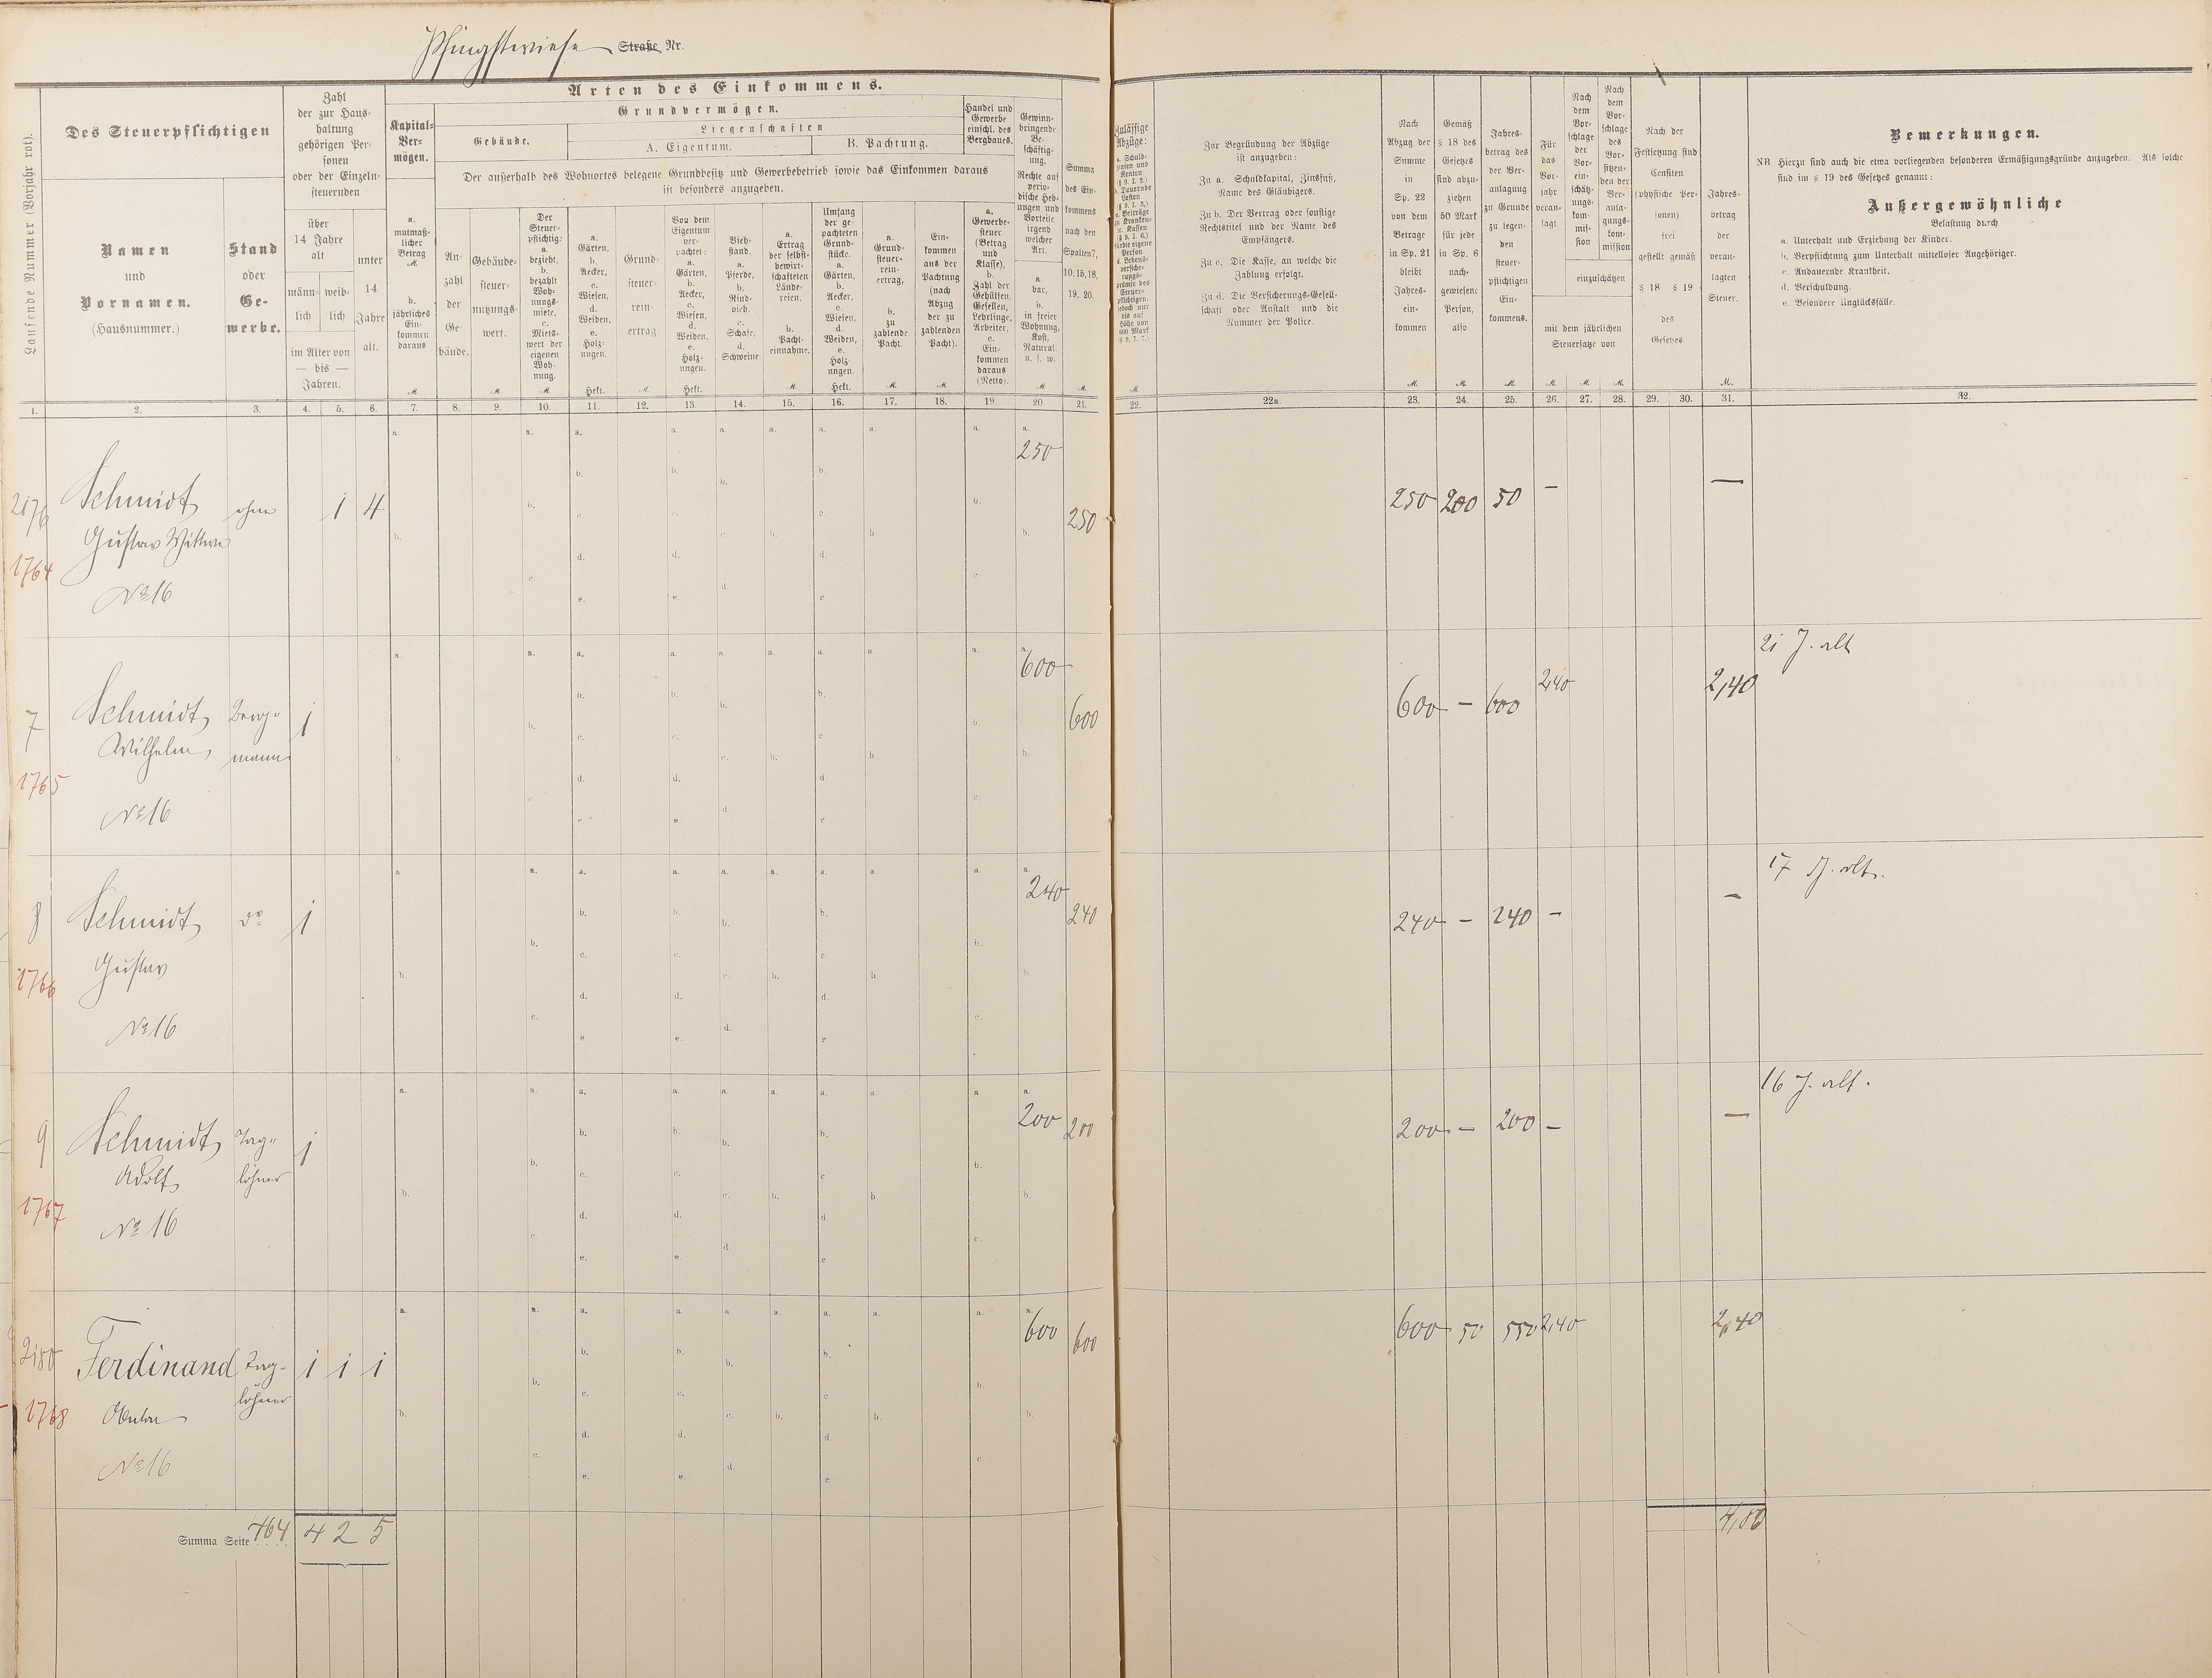 Pfingstwiese Straße Nr.
Laufende Nummer (Vorjahr rot).
Des Steuerpflichtigen
Namen
und
Vornamen.
(Hausnummer.)
Stand
oder
Ge-
werbe.
Zahl
der zur Haus-
haltung
gehörigen Per-
sonen
oder der Einzeln-
steuernden
über
14 Jahre
alt
männ-
lich
weib-
lich
im Alter von
— bis —
Jahren.
unter
14
Jahre
alt.
Arten des Einkommens.
Kapital-
Ver-
mögen.
a.
mutmaß-
licher
Betrag
M.
b.
jährliches
Ein-
kommen
daraus
M.
Grundvermögen.
Gebäude.
Liegenschaften
A. Eigentum.
B. Pachtung.
Der außerhalb des Wohnortes belegene Grundbesitz und Gewerbebetrieb sowie das Einkommen daraus
ist besonders anzugeben.
An-
zahl
der
Ge-
bäude.
Gebäude-
steuer-
nutzungs-
wert.
M.
Der
Steuer-
pflichtig:
a.
bezieht,
b.
bezahlt
Woh-
nungs-
miete,
c.
Miets-
wert der
eigenen
Woh-
nung.
M.
a.
Gärten,
b.
Aecker,
c.
Wiesen,
d.
Weiden,
e.
Holz-
ungen.
Hekt.
Grund-
steuer-
rein-
ertrag
M.
Von dem
Eigentum
ver-
pachtet:
a.
Gärten,
b.
Aecker,
c.
Wiesen,
d.
Weiden.
e.
Holz-
ungen.
Hekt.
Vieh-
stand.
a.
Pferde,
b.
Rind-
vieh.
c.
Schafe,
d.
Schweine.
a.
Ertrag
der selbst-
bewirt-
schafteten
Lände-
reien,
b.
Pacht-
einnahme.
M.
Umfang
der ge-
pachteten
Grund-
stücke.
a.
Gärten,
b.
Aecker,
c.
Wiesen,
d.
Weiden,
e.
Holz-
ungen.
Hekt.
a.
Grund-
steuer-
rein-
ertrag,
b.
zu
zahlende
Pacht.
M.
Ein-
kommen
aus der
Pachtung
(nach
Abzug
der zu
zahlenden
Pacht).
M.
Handel und
Gewerbe
einschl. des
Bergbaues.
a.
Gewerbe-
steuer
(Betrag
und
Klasse),
b.
Zahl der
Gehülfen,
Gesellen,
Lehrlinge,
Arbeiter,
c.
Ein-
kommen
daraus
(Netto).
Gewinn-
bringende
Be-
schäftig-
ung.
Rechte auf
perio-
dische Heb-
ungen und
Vorteile
irgend
welcher
Art.
a.
bar,
b.
in freier
Wohnung,
Kost,
Natural.
u. s. w.
M.
Summa
des Ein-
kommens
nach den
Spalten 7,
10, 15, 18,
19, 20.
M.
Zulässige
Abzüge:
a. Schuld-
zinsen und
Renten
(§ 9. I. 2.)
b. Dauernde
Lasten
(§ 9. I. 3.)
c. Beiträge
zu Kranken-
Kassen
(§ 9. I. 6.)
für die eigene
Person
d. Lebens-
versiche-
rungs-
prämie des
Steuer-
pflichtigen,
jedoch nur
bis auf
Höhe von
600 Mark
(§ 9. I. 7.)
M.
Zur Begründung der Abzüge
ist anzugeben:
Zu a. Schuldkapital, Zinsfuß,
Name des Gläubigers.
Zu b. Der Vertrag oder sonstige
Rechtstitel und der Name des
Empfängers.
Zu c. Die Kasse, an welche die
Zahlung erfolgt.
Zu d. Die Versicherungs-Gesell-
schaft oder Anstalt und die
Nummer der Police.
Nach
Abzug der
Summe
in
Sp. 22
von dem
Betrage
in Sp. 21
bleibt
Jahres-
ein-
kommen
M.
Gemäß
§ 18 des
Gesetzes
sind abzu-
ziehen
50 Mark
für jede
in Sp. 6
nach-
gewiesene
Person,
also
M.
Jahres-
betrag des
der Ver-
anlagung
zu Grunde
zu legen-
den
steuer-
pflichtigen
Ein-
kommens.
M.
Für
das
Vor-
jahr
veran-
lagt
M.
Nach
dem
Vor-
schlage
der
Vor-
ein-
schätz-
ungs-
kom-
mis-
sion
M.
Nach
dem
Vor-
schlage
des
Vor-
sitzen-
den der
Ver-
anla-
gungs-
kom-
mission
M.
einzuschätzen
mit dem jährlichen
Steuersatze von
Nach der
Festsetzung sind
Censiten
(physische Per-
sonen)
frei
gestellt gemäß
§ 18 § 19
des
Gesetzes.
Jahres-
betrag
der
veran-
lagten
Steuer.
M.
Bemerkungen.
NB Hierzu sind auch die etwa vorliegenden besonderen Ermäßigungsgründe anzugeben. Als solche
sind im § 19 des Gesetzes genannt:
Außergewöhnliche
Belastung durch
a. Unterhalt und Erziehung der Kinder.
b. Verpflichtung zum Unterhalt mittelloser Angehöriger.
c. Andauernde Krankheit.
d. Verschuldung.
e. Besondere Unglücksfälle.
1. 2. 3. 4. 5. 6. 7. 8. 9. 10. 11. 12. 13. 14. 15. 16. 17. 18. 19. 20 21. 22. 22a. 23. 24. 25. 26. 27. 28. 29. 30. 31. 32.
250
2176 Schmidt ohne 1 4 250 250 200 50 — —
Gustav Wittwe
1764
No 16
21 J. alt
600
7 Schmidt Berg- 1 600 600 — 600 2,40 2,40
Wilhelm mann
1765
No 16
17 J. alt.
240
8 Schmidt do 1 240 240 — 240 — —
Gustav
1766
No 16
16 J. alt.
200
9 Schmidt Tag- 1 200 200 — 200 — —
Adolf löhner
1767
No 16
600
2180 Ferdinand Tag- 1 1 1 600 600 50 550 2,40 2,40
löhner
1768 Anton
No 16
Summa Seite 464 4 2 5 4,80